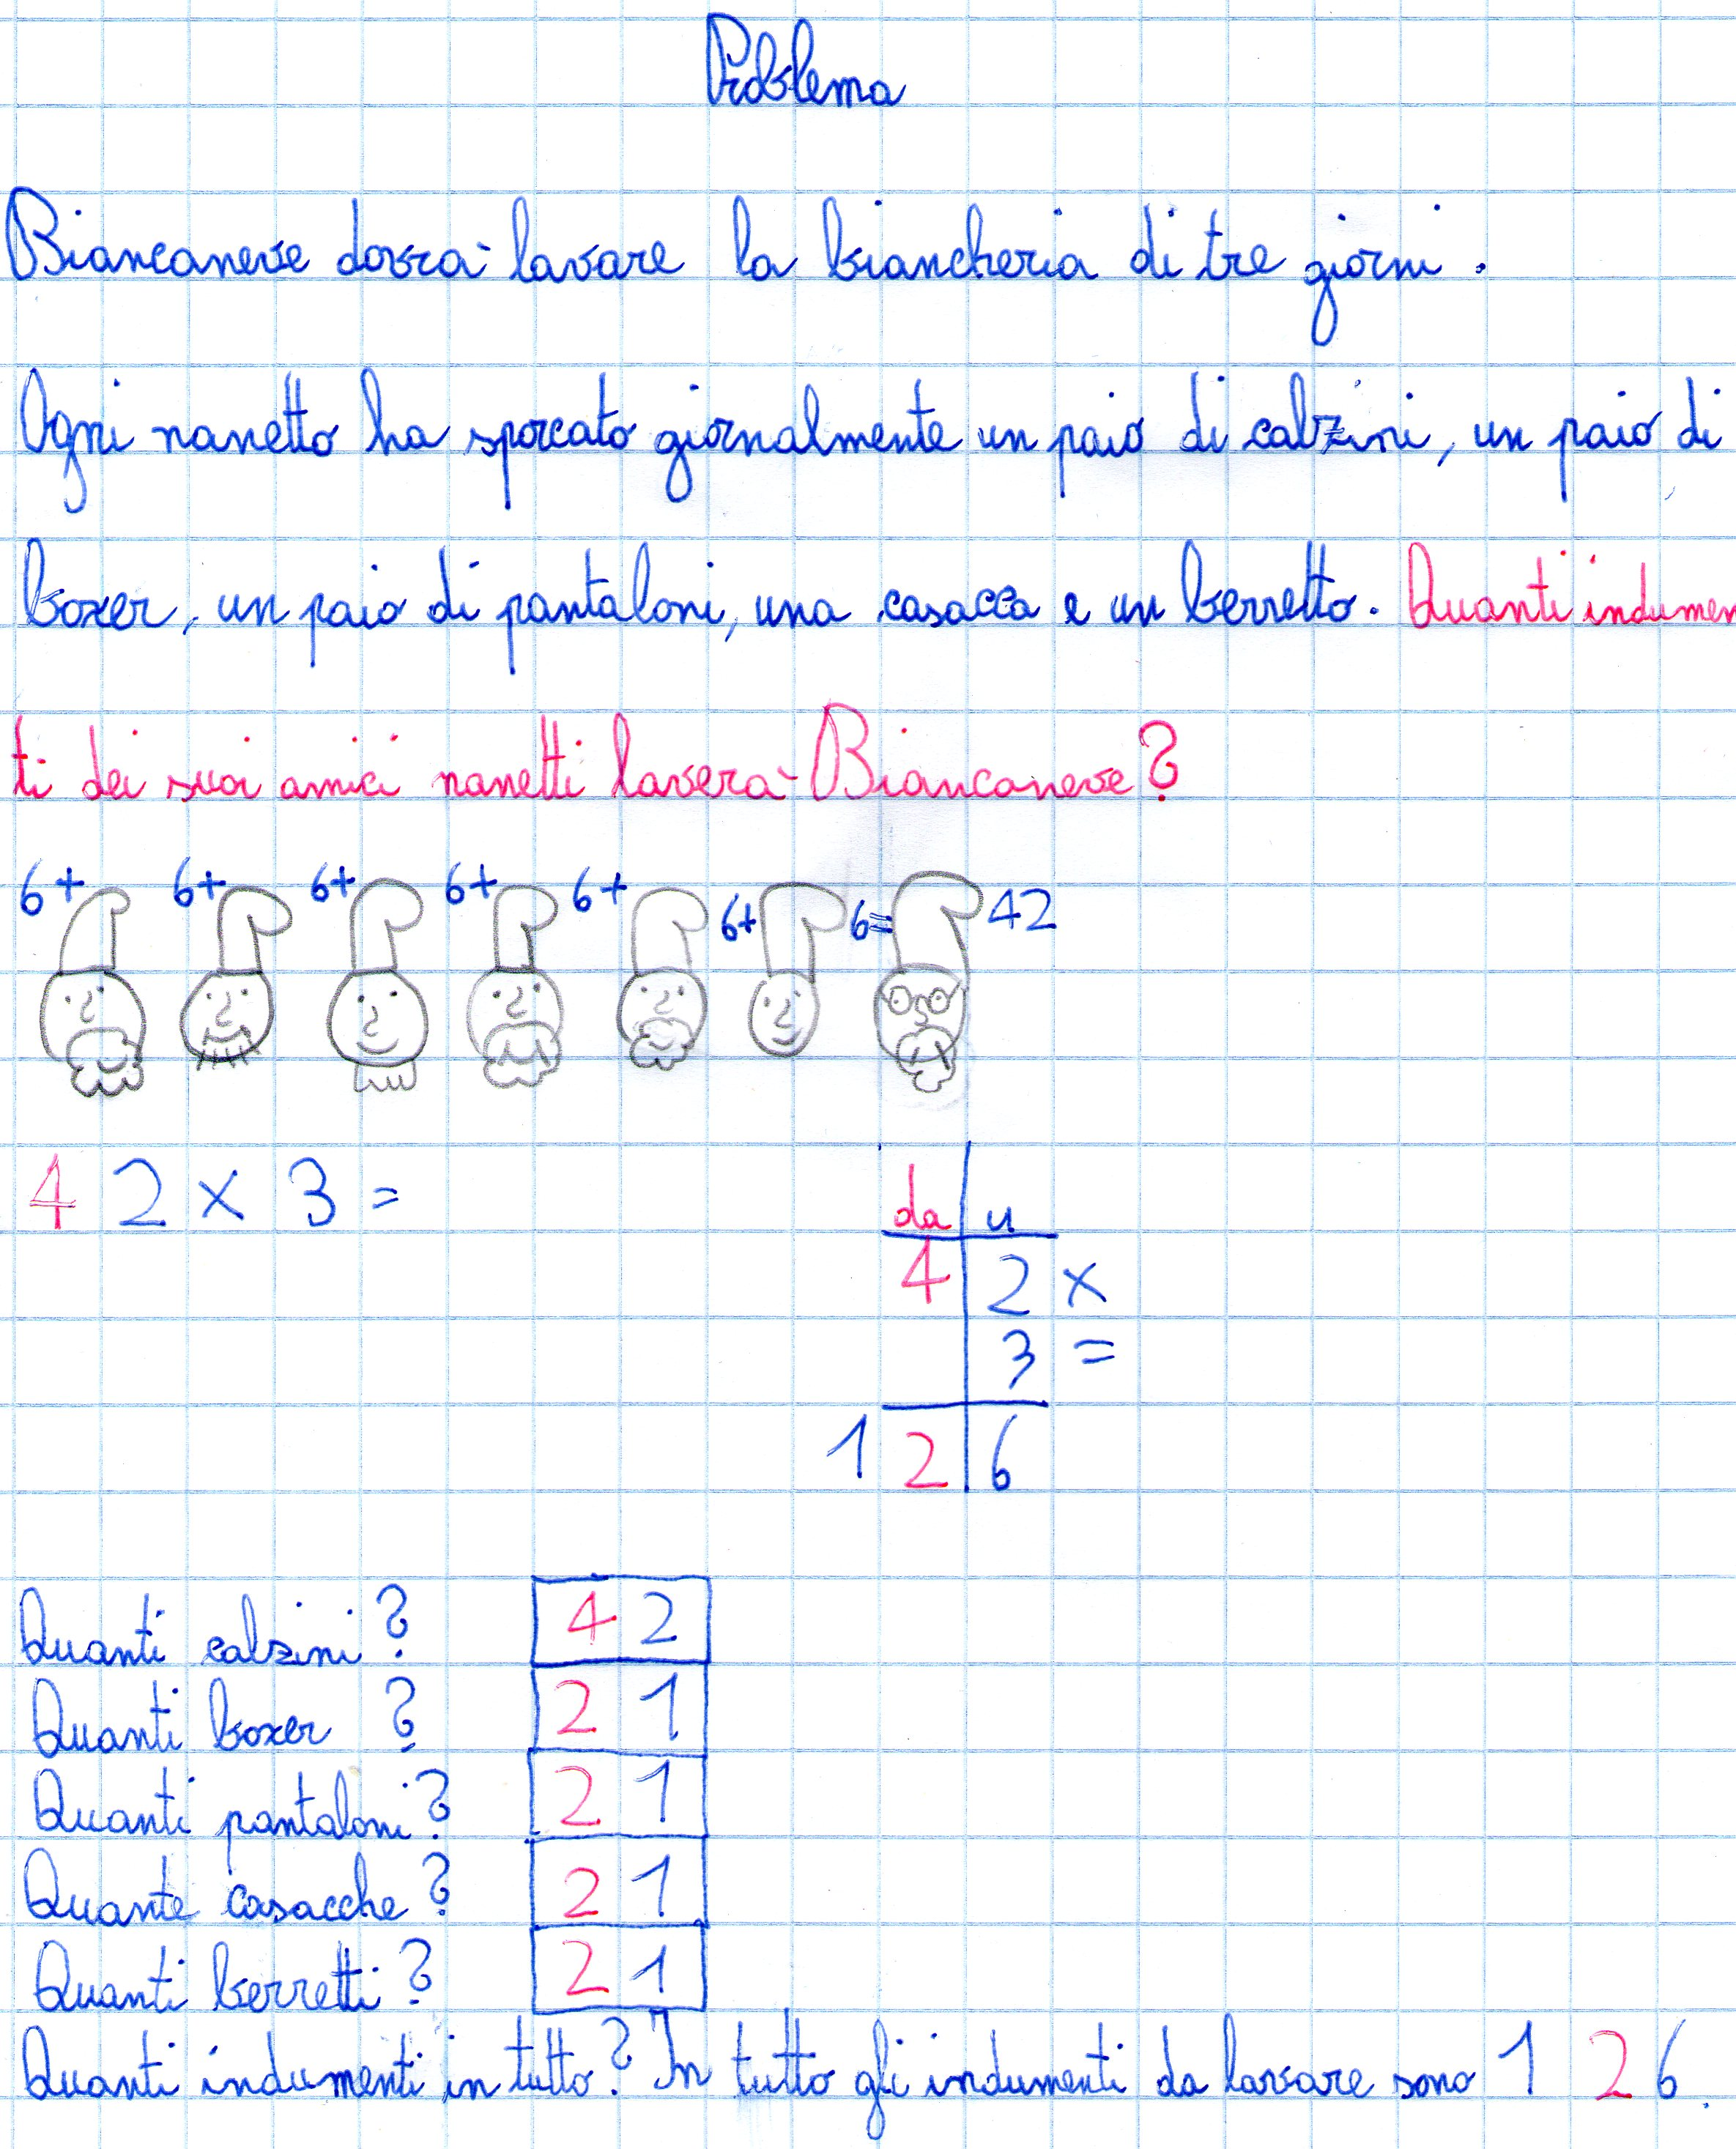 Problema
Biancaneve dovrà lavare la biancheria di tre giorni.
Ogni nanetto ha sporcato giornalmente un paio di calzini, un paio di
boxer, un paio di pantaloni, una casacca e un berretto. Quanti indumen
ti dei suoi amici nanetti laverà Biancaneve?
6+ 6+ 6+ 6+ 6+ 6+ 6= 42
42 x 3 =
da u
4 2 x
3 =
1 2 6
Quanti calzini? 42
Quanti boxer? 21
Quanti pantaloni? 21
Quante casacche? 21
Quanti berretti? 21
Quanti indumenti in tutto? In tutto gli indumenti da lavare sono 126.